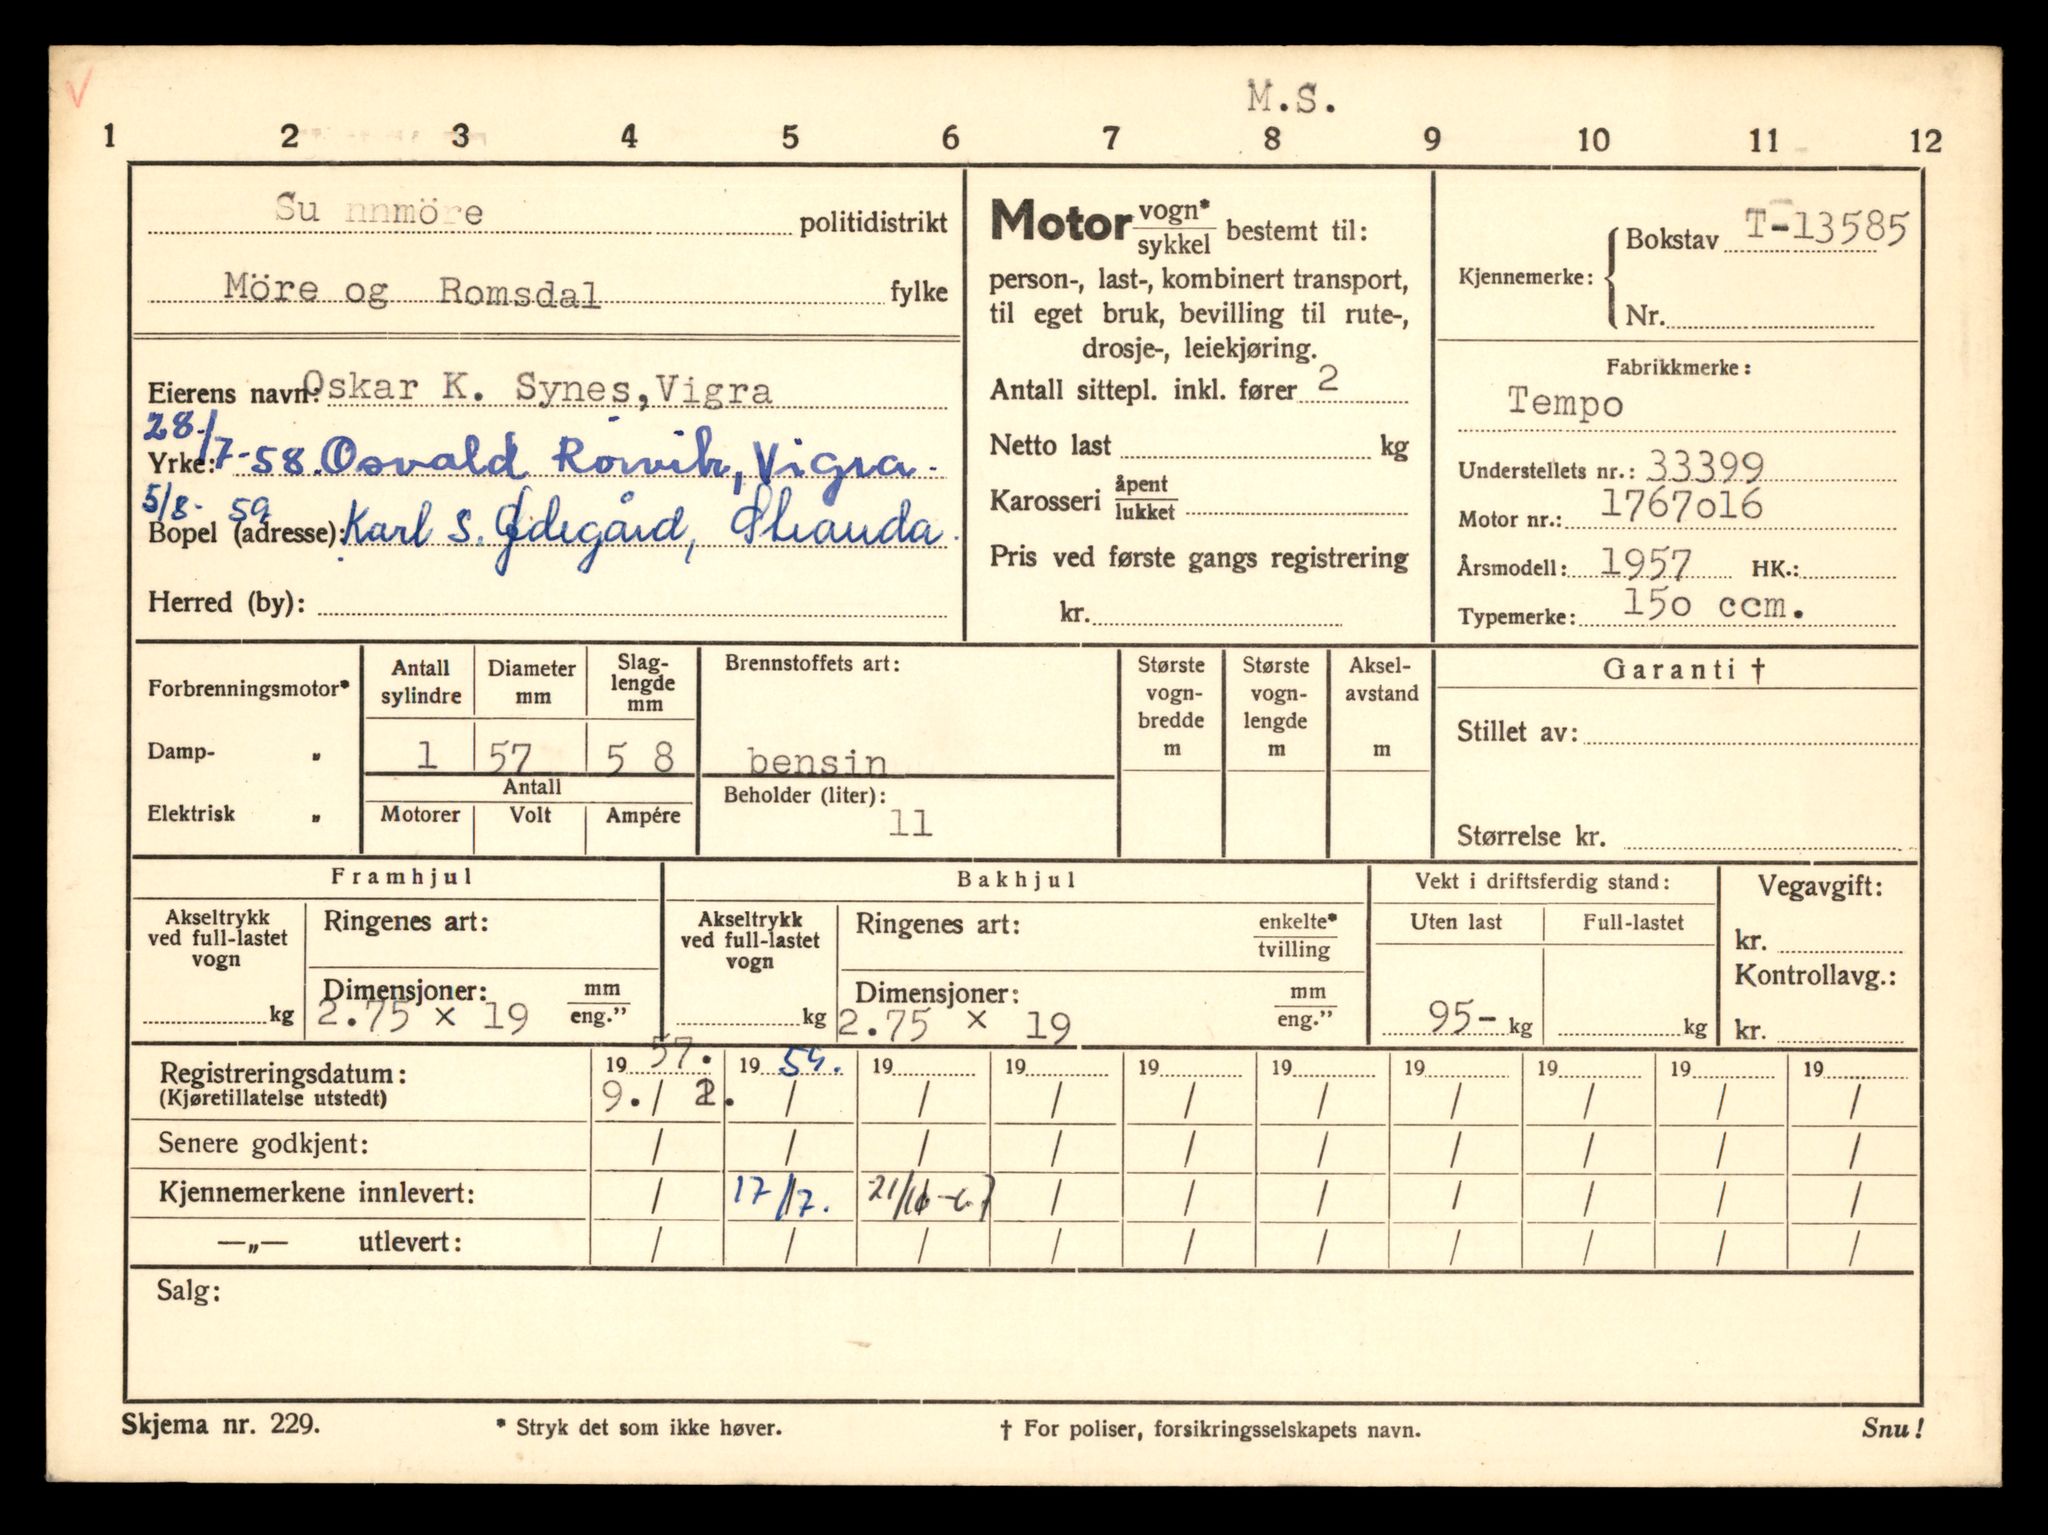 M.S.
1 2 3 4 5 6 7 8 9 10 11 12
Su nnmöre politidistrikt
Möre og Romsdal fylke
Eierens navn: Oskar K. Synes, Vigra
28/7-58. Osvald Rörvik, Vigra.
Yrke:
5/8-59 Karl S. Ødegård, Skauda.
Bopel (adresse):
Herred (by):
Motor vogn*/sykkel bestemt til:
person-, last-, kombinert transport,
til eget bruk, bevilling til rute-,
drosje-, leiekjøring.
Antall sittepl. inkl. fører 2
Netto last kg
Karosseri åpent/lukket
Pris ved første gangs registrering
kr.
Kjennemerke: Bokstav T-13585
Nr.
Fabrikkmerke:
Tempo
Understellets nr.: 33399
Motor nr.: 1767o16
Årsmodell: 1957 HK.:
Typemerke: 15o ccm.
Forbrenningsmotor*
Damp- „
Elektrisk „
Antall sylindre Diameter mm Slag-lengde mm
1 57 5 8
Antall
Motorer Volt Ampére
Brennstoffets art:
bensin
Beholder (liter):
11
Største vogn-bredde m
Største vogn-lengde m
Aksel-avstand m
Garanti †
Stillet av:
Størrelse kr.
Framhjul
Akseltrykk ved full-lastet vogn
kg
Ringenes art:
Dimensjoner: mm/eng.”
2.75 x 19
Bakhjul
Akseltrykk ved full-lastet vogn
kg
Ringenes art: enkelte*/tvilling
Dimensjoner: mm/eng.”
2.75 x 19
Vekt i driftsferdig stand:
Uten last Full-lastet
95- kg kg
Vegavgift:
kr.
Kontrollavg.:
kr.
Registreringsdatum: 19 57. 19 59. 19 19 19 19 19 19 19 19
(Kjøretillatelse utstedt) 9. / 2. / / / / / / / / /
Senere godkjent: / / / / / / / / / /
Kjennemerkene innlevert: / 17/7. 21/ / / / / / / /
—„— utlevert: / / / / / / / / / /
Salg:
Skjema nr. 229. * Stryk det som ikke høver. † For poliser, forsikringsselskapets navn. Snu!